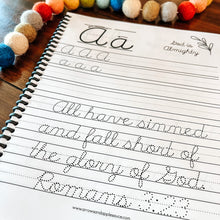 Aa
God is
Almighty
A A A
a a a
All have sinned
and fall short of
the glory of God.
Romans 3:23
www.arrowsandapplesauce.com